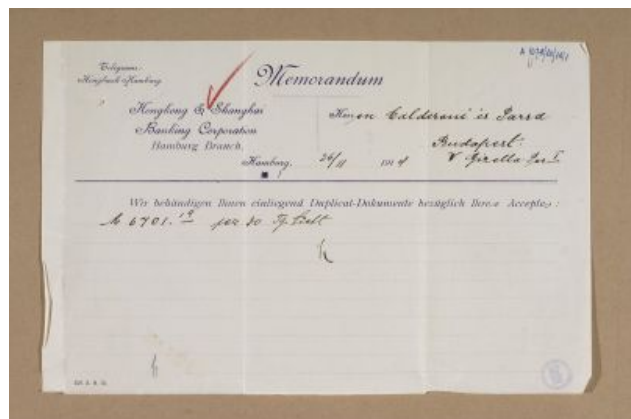 Telegramm:
Hongbank Hamburg.
Memorandum
Hongkong & Shanghai
Banking Corporation
Hamburg Branch.
Herren Calderoni és Társa
Budapest.
V Gizella
Hamburg, 26/11 1914
Wir behändigen Ihnen einliegend Duplicat-Dokumente bezüglich Ihres Acceptes:
M 6701.19 per 30